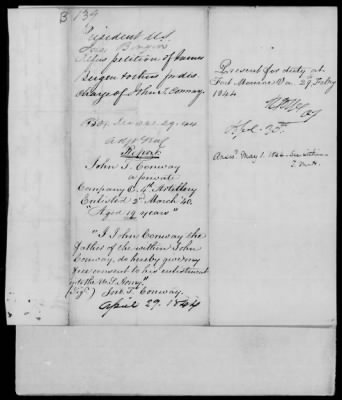 B 139
President U.S.
Refers petition of James
Bergen for the dis-
charge of John T. Conway.
Rec. 29, 44
Report
John T. Conway
a private
Company C. 4th Artillery
Enlisted 2d March '40.
"Aged 19 years"
"I John Conway the
father of the within John
Conway, do hereby give my
free consent to his enlistment
into the U.S. Army."
(Sig.d) Jno. T. Conway.
April 29. 1844
Present for duty at
Fort Monroe Va. 29 Feby
1844
Ansd. May 1. 1844. See within